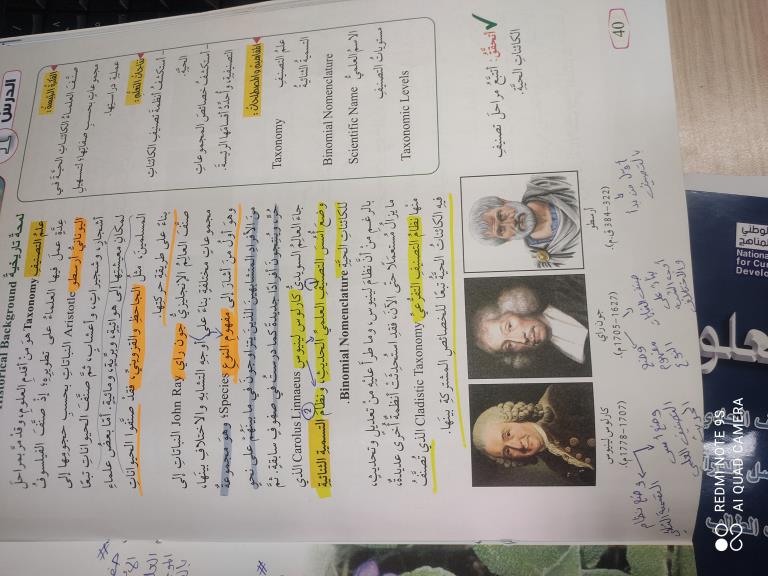 الدرس
لمحة تاريخية Historical Background
علم التصنيف Taxonomy هو من أقدم العلوم، وقد مر بمراحل
عدة عمل فيها العلماء على تطويره؛ إذ صنف الفيلسوف
اليوناني أرسطو Aristotle النباتات بحسب حجومها إلى
أشجار، وشجيرات، وأعشاب، ثم صنف الحيوانات تبعا
لمكان معيشتها إلى هوائية، وبرية، ومائية. أما بعض علماء
المسلمين، مثل الجاحظ والقزويني، فقد صنفوا الحيوانات
بناء على طريقة حركتها.
صنف العالم الإنجليزي جون راي John Ray النباتات إلى
مجموعات مختلفة بناء على أوجه التشابه والاختلاف بينها،
وهو أول من أشار إلى مفهوم النوع Species؛ وهو مجموعة
من الأفراد المتشابهين الذين يتزاوجون في ما بينهم على نحو
حر، وينتجون أفرادا جديدة كما درست في صفوف سابقة. ثم
جاء العالم السويدي كارلوس لينيوس Carolus Linnaeus الذي
وضع أسس التصنيف العلمي الحديث، ونظام التسمية الثنائية
للكائنات الحية Binomial Nomenclature.
بالرغم من أن نظام لينيوس، وما طرأ عليه من تعديل وتحديث،
ما يزال مستعملا حتى الآن، فقد استحدثت أنظمة أخرى عديدة،
منها نظام التصنيف التفرعي Cladistic Taxonomy الذي تصنف
فيه الكائنات الحية تبعا للخصائص المشتركة بينها.
الفكرة الرئيسة:
صنف العلماء الكائنات الحية في
مجموعات بحسب صفاتها؛ لتسهيل
عملية دراستها.
نتاجات التعلم:
- أستكشف أنظمة تصنيف الكائنات
الحية.
- أستكشف خصائص المجموعات
التصنيفية، وأحدد أقسامها الرئيسة.
المفاهيم والمصطلحات:
علم التصنيف Taxonomy
التسمية الثنائية
Binomial Nomenclature
الاسم العلمي Scientific Name
مستويات التصنيف
Taxonomic Levels
أتحقق: أتتبع مراحل تصنيف
الكائنات الحية.
أرسطو
(384-322 ق.م)
جون راي
(1627-1705م)
كارلوس لينيوس
(1707-1778م)
أول من بدأ
بالتصنيف
وضع
مفهوم
النوع
وضع أسس
التصنيف العلمي
وضع نظام
التسمية الثنائية
40
الوطني
المناهج
National
for Cur
Develo
REDMI NOTE 9S
AI QUAD CAMERA